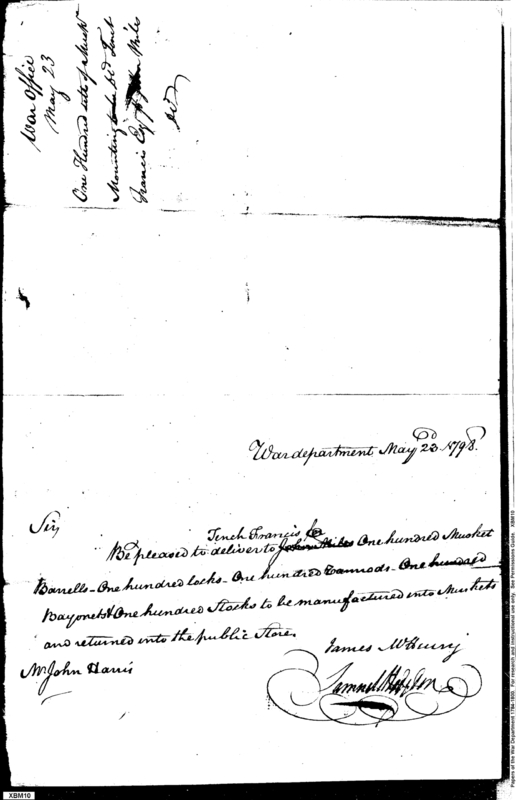 War Office
May 23
One Hundred sets of Musket
Mounting to be Dd Tench
Francis Esqr John Miles
War department May 23d 1798.
Sir
Tench Francis Esqr
Be pleased to deliver to John Miles One hundred Musket
Barrells - One hundred locks - One hundred Ramrods - One hundred
Bayonets & One hundred Stocks to be manufactured into Muskets
and returned into the public Stores
James McHenry
Mr John Harris
Samuel Hodgdon
Papers of the War Department 1784-1800. For research and instructional use only. See Permissions Guide. XBM10
XBM10